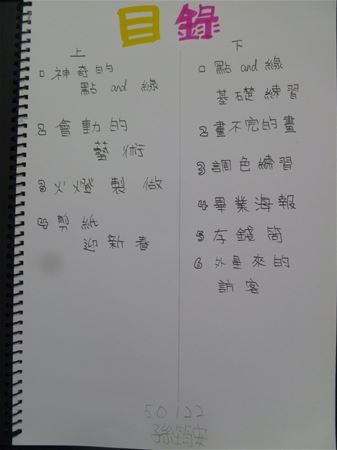 目錄
上
1 神奇的
點 and 線
2 會動的
藝術
3 火燈製做
4 剪紙
迎新春
下
1 點 and 線
基礎練習
2 畫不完的畫
3 調色練習
4 畢業海報
5 存錢筒
6 外星來的
訪客
50122
孫筠安